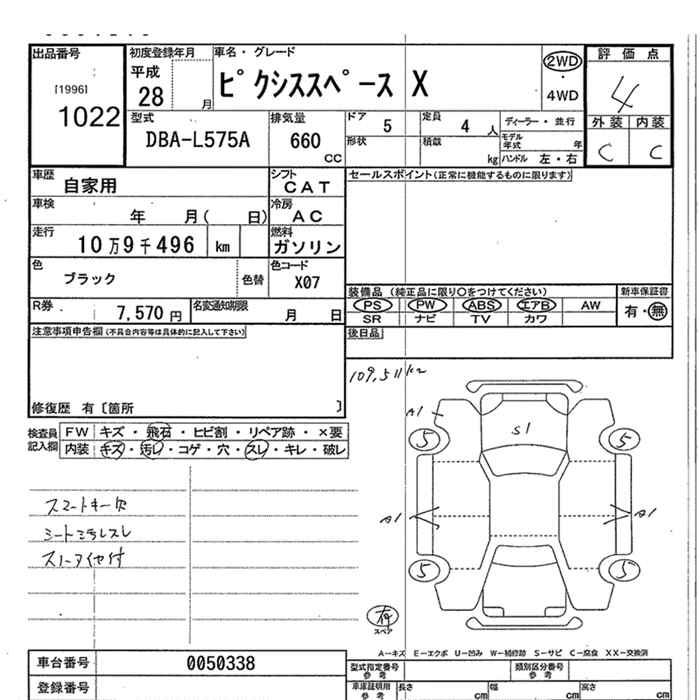 出品番号
[1996]
1022
初度登録年月
平成
28 月
車名・グレード
ピクシススペース X
2WD
・
4WD
評価点
4
外装 内装
C C
型式
DBA-L575A
排気量
660
CC
ドア
5
定員
4 人
形状
積載
kg
ディーラー・並行
モデル
年式 年
ハンドル 左・右
車歴
自家用
シフト
CAT
車検
年 月( 日)
冷房
AC
走行
10万9千496 km
燃料
ガソリン
色
ブラック
色替
色コード
X07
R券
7,570 円
名変通知期限
月 日
セールスポイント(正常に機能するものに限ります)
装備品 (純正品に限り○をつけてください)
新車保証書
PS PW ABS エアB AW
有・無
SR ナビ TV カワ
後日品
注意事項申告欄(不具合内容等は具体的に記入して下さい)
修復歴 有〔箇所 〕
検査員
記入欄
FW キズ・飛石・ヒビ割・リペア跡・×要
内装 キズ・汚レ・コゲ・穴・スレ・キレ・破レ
スマートキー欠
シート汚れスレ
109,511km
A1
S1
5 5
A1 A1
5 5
有
スペア
A－キズ E－エクボ U－凹み W－補修跡 S－サビ C－腐食 XX－交換済
車台番号
0050338
登録番号
型式指定番号
参考
類別区分番号
参考
車庫証明用
参考
長さ cm
幅 cm
高さ cm